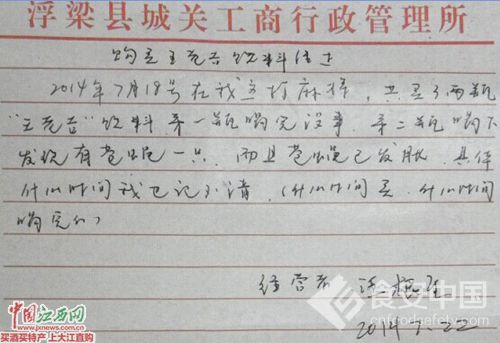 浮梁县城关工商行政管理所
购买王老吉饮料经过
2014年7月18号在我这打麻将，共买了两瓶
"王老吉"饮料第一瓶喝完没事，第二瓶喝下
发现有苍蝇一只，而且苍蝇已发胀，具体
什么时间我也记不清，（什么时间买，什么时间
喝完的）
经营者 汪
2014.7.22
食安中国
cnfoodsafety.com
中国江西网
www.jxnews.com.cn
买酒买特产 上大江直购